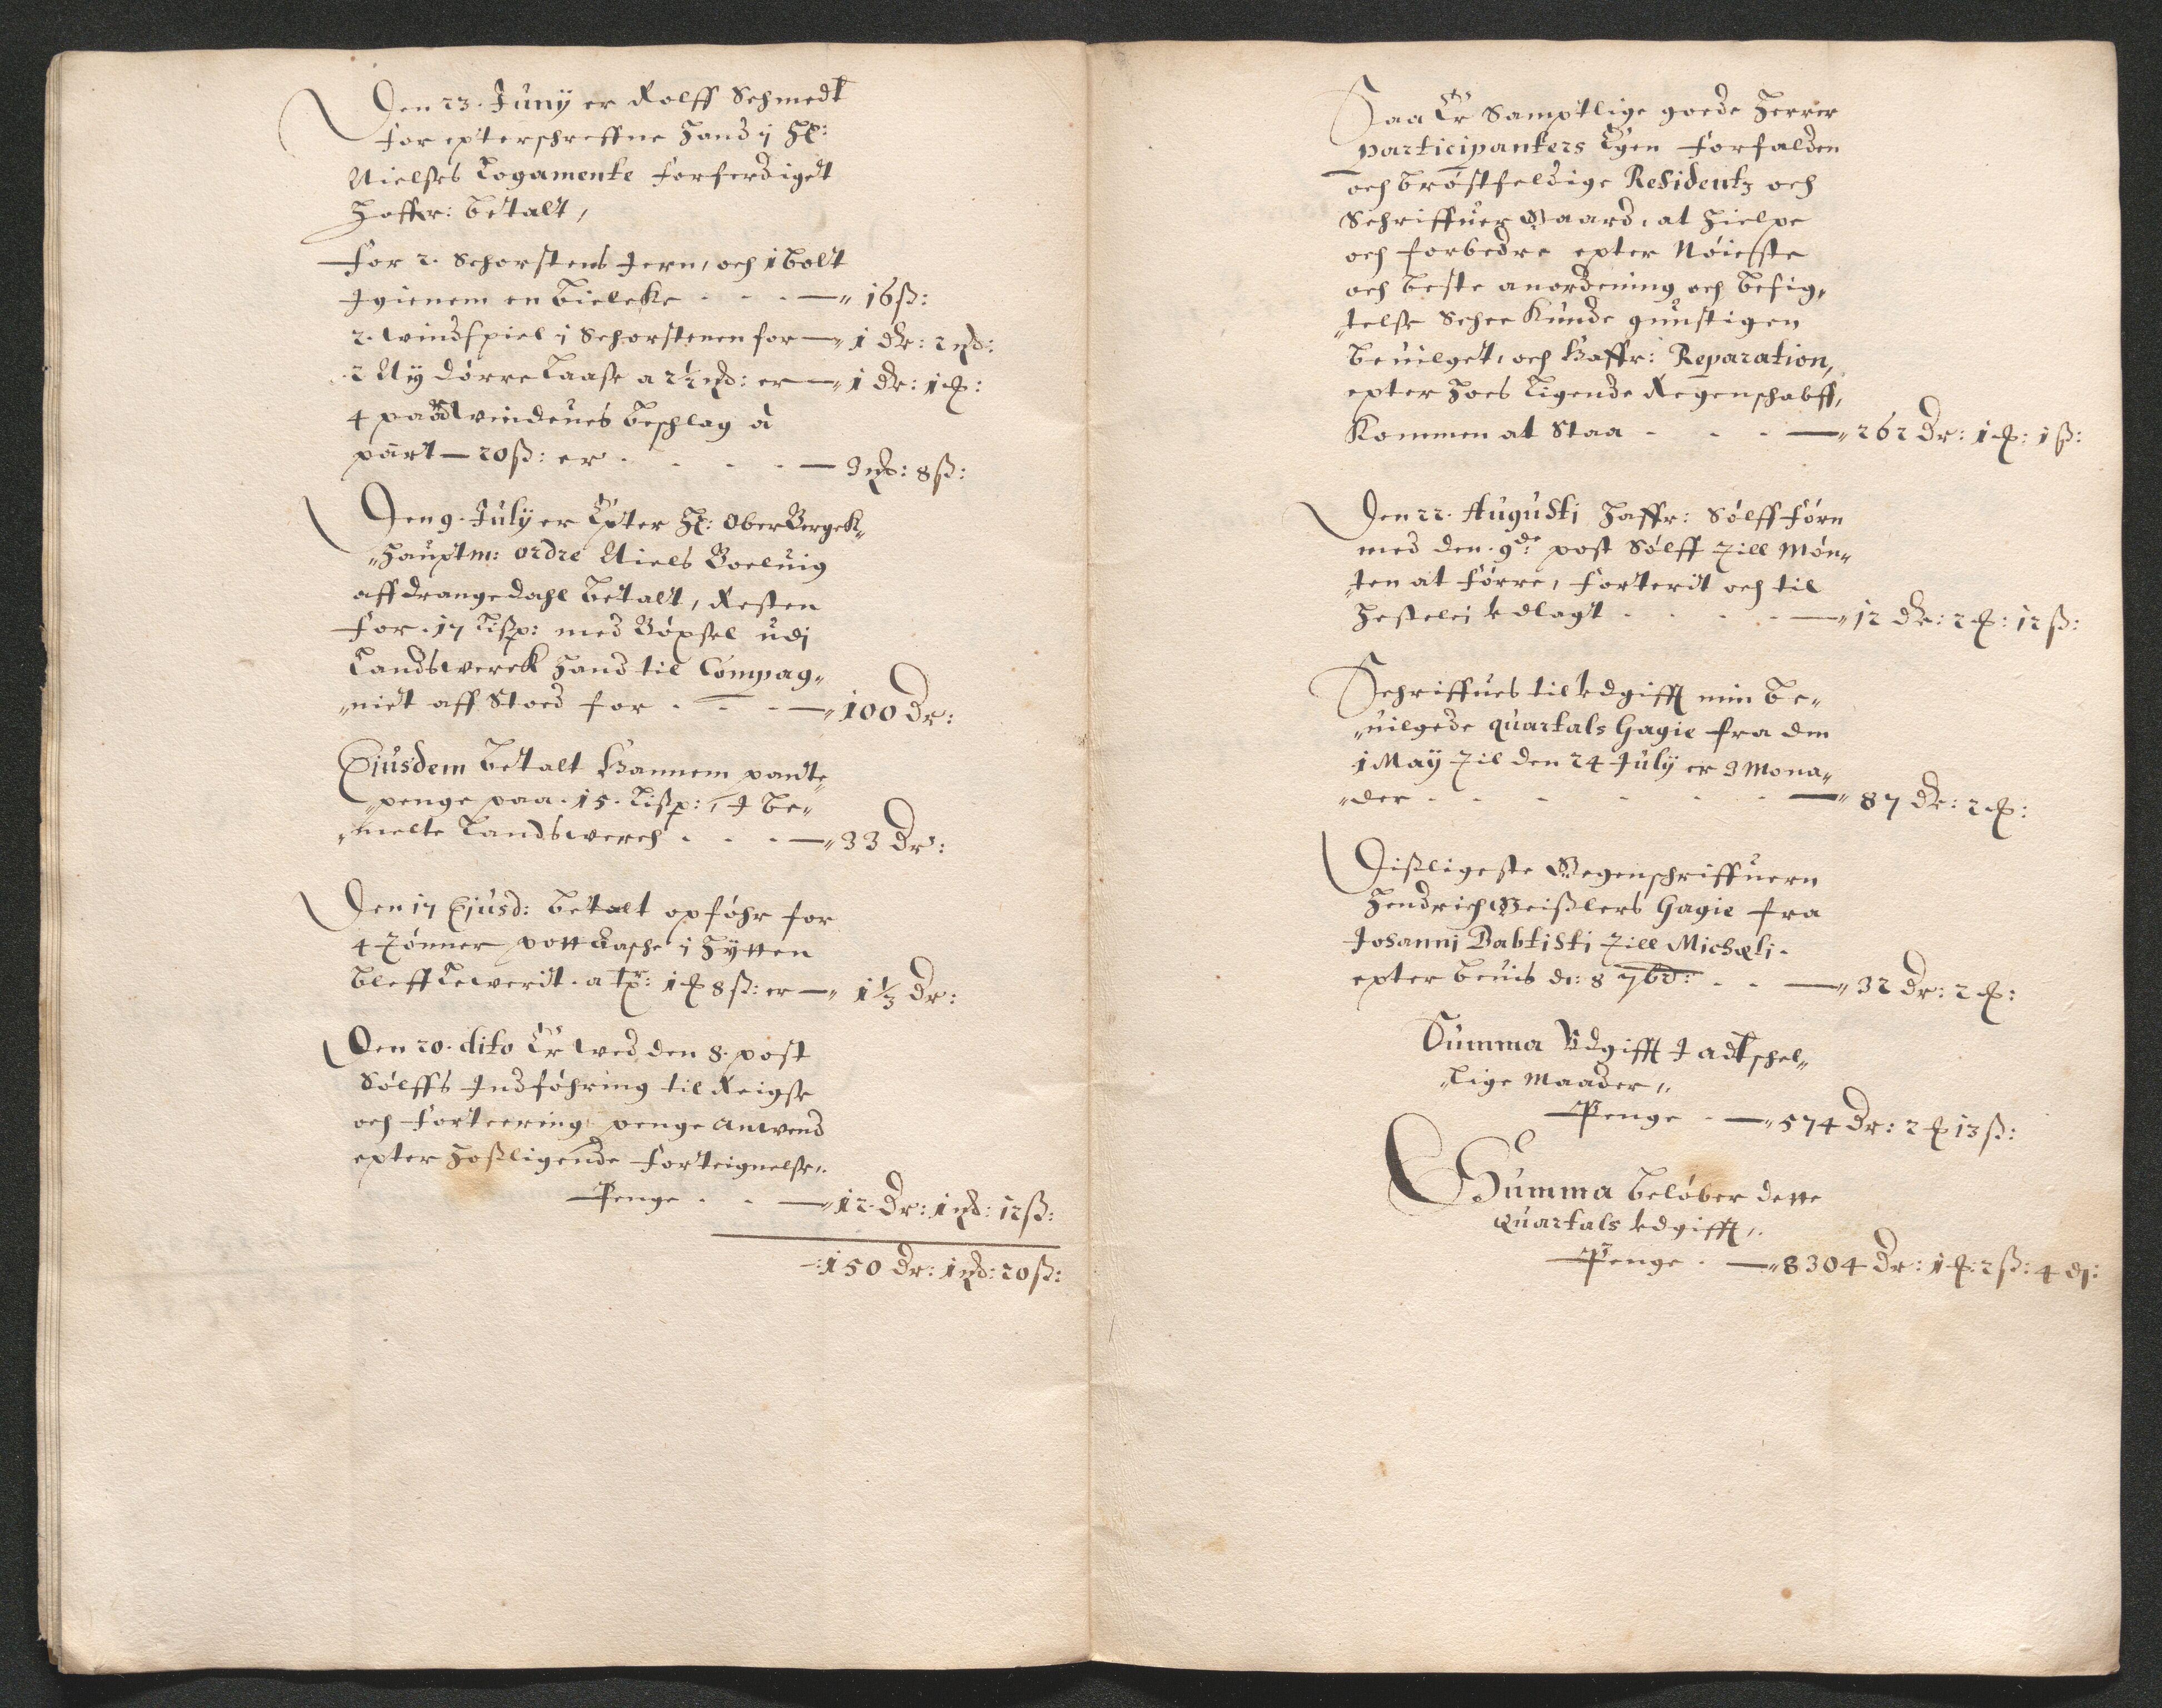 Den 23. Juny er Rolff Schmedt
for epterschreffne Hand i H:
Nielses Logamente forferdiget
Haffr: betalt,
For 2. Schorstens Jern, och 1 bolt
Igienem en bielcke - - - 16 ß:
2. windspiel i Schorstenen for — 1 dr: 2
2 Ny dörre Laase a 2½ : er — 1 dr: 1
4 paar vindeues beschlag à
part — 20 ß: er - - - 3 : 8 ß:
Den 9. July er Epter H: Ober Bergk-
Hauptm: ordre Niels Boelvig
aff drangedahl betalt, Resten
For 17 Lißp: med Böxsel udi
Landswerck Hand til Compag-
niet aff Stoed for - - - 100 Dr:
Ejusdem betalt Hannem pante
penge paa 15. Lißp:, J be-
melte Landswerch - - - 33 Dr:
Den 17 Ejusd: betalt opföhr for
4 Tönner pottasche i Hytten
bleff Lewerit. a tr: 1 8 ß: er — 1⅓ Dr:
Den 20. dito Er wed den 8. post
Sölffs Indföhring til Reigse
och Forteering, penge Anwend
epter Hoßligende Forteignelse,.
Penge - - - 12 Dr: 1 : 12 ß:
150 Dr: 1 : 20 ß:
Saa Er Samptlige goede Herrer
participanters Egen Forfalden
och bröstfeldige Residentz och
Schriffuer Gaard, at Hielpe
och forbedre epter Nöieste
och beste anordening och besig-
telse Schee kunde gunstigen
beuilget, och Haffr: Reparation,
epter Hoes Ligende Regenschabff,
Kommen at Staa - - - 262 Dr: 1 : 1 ß:
Den 22. Augusti Haffr: Sölff Förn
med den 9de post Sölff Till Mön-
ten at Förre, Forterit och til
Hestelej vdlagt - - - 12 Dr: 2 : 12 ß:
Schriffues til vdgifft min be-
uilgede quartals Gagie fra den
1 May Til den 24 July er 3 Mona-
der - - - 87 Dr: 2 :
Dißligeste Gegenschriffuern
Hendrich Geißlers Gagie fra
Johanni Babtisti Till Michæli.
epter beuis - - - 32 Dr: 2 :
Summa Vdgifft J adtschel-
lige Maader,.
Penge - 574 Dr: 2 13 ß:
Summa belöber dette
Quartals vdgifft,.
Penge - 8304 Dr: 1 : 2 ß: 4 :